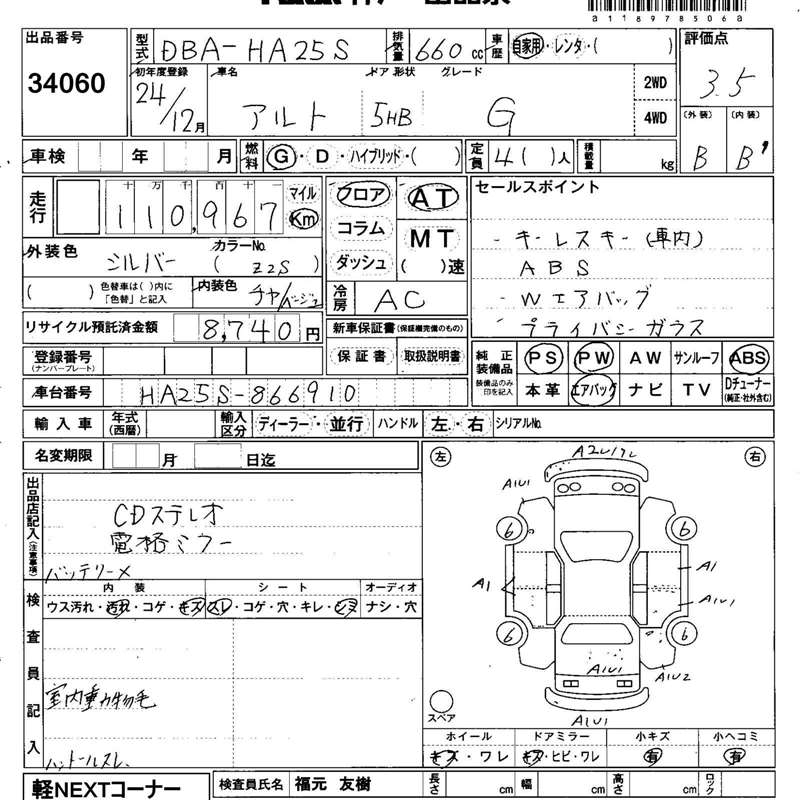 a118978506a
出品番号
34060
型式 DBA-HA25S
排気量 660 cc
車歴 自家用・レンタ・( )
評価点
3.5
初年度登録
24/12月
車名
アルト
ドア 形状
5HB
グレード
G
2WD
4WD
(外装) (内装)
B B'
車検 年 月
燃料 G・D・ハイブリッド・( )
定員 4( )人
積載量 kg
走行
十 万 千 百 十 一
110,967
マイル
Km
フロア
コラム
ダッシュ
AT
MT
( )速
セールスポイント
- キーレスキー(車内)
ABS
- Wエアバッグ
プライバシーガラス
外装色 シルバー
カラーNo.
( Z2S )
( ) 色替車は( )内に「色替」と記入
内装色 チャ/ベージュ
冷房 AC
リサイクル預託済金額 8,740円
新車保証書(保証欄完備のもの)
保証書 取扱説明書
純正装備品 PS PW AW サンルーフ ABS
装備品のみ印を記入 本革 エアバッグ ナビ TV Dチューナー(純正・社外含む)
登録番号
(ナンバープレート)
車台番号 HA25S-866910
輸入車 年式(西暦) 輸入区分 ディーラー・並行 ハンドル 左・右 シリアルNo.
名変期限 月 日迄
左 右
出品店記入(注意事項)
CDステレオ
電格ミラー
バッテリーメ
検査員記入
内装 シート オーディオ
ウス汚れ・汚れ・コゲ・キズ スレ・コゲ・穴・キレ・シミ ナシ・穴
室内動物毛
ハンドルスレ
A1U1
6 6
A1 A1
A1U1
6 6
A1U1 A1U2
A1U1
スペア
ホイール ドアミラー 小キズ 小ヘコミ
キズ・ワレ キズ・ヒビ・ワレ 有 有
軽NEXTコーナー
検査員氏名 福元 友樹
長さ cm 幅 cm 高さ cm ロック